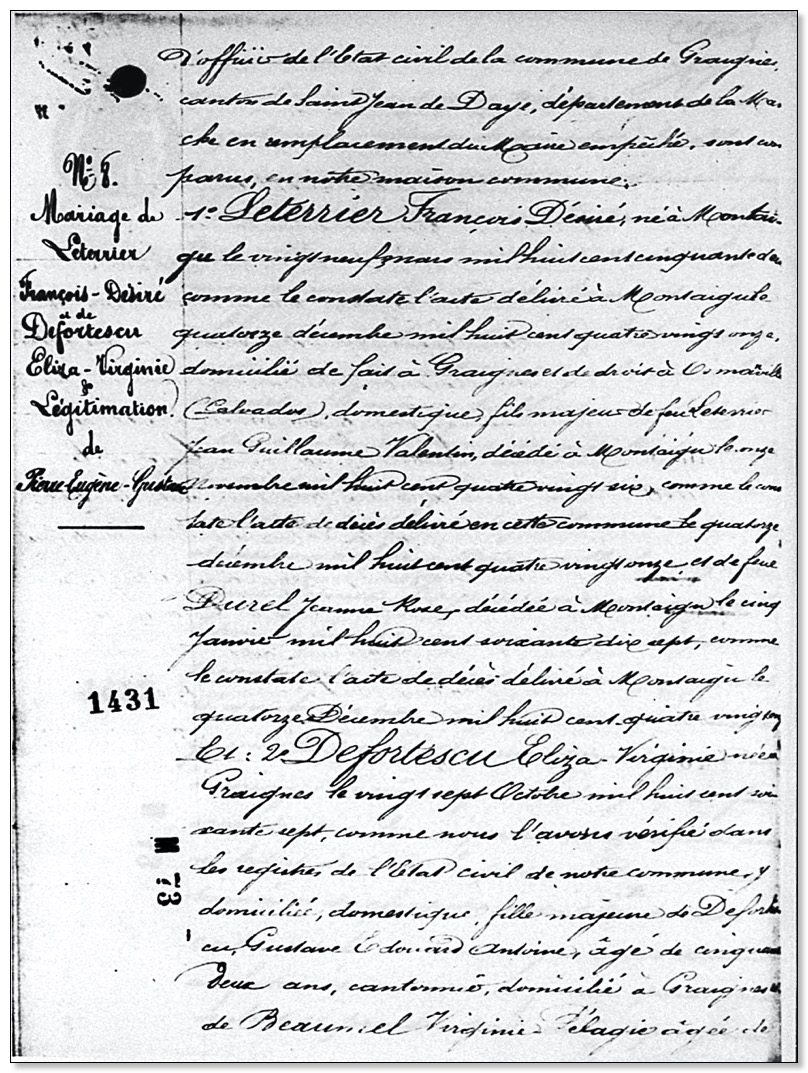 N° 8.
Mariage de
Leterrier
François-Désiré
et de
Defortescu
Eliza-Virginie
&
Légitimation
de
Pierre Eugène-Gustave
1431
d'officier de l'Etat civil de la commune de Graignes,
canton de Saint Jean de Daye, département de la Man
che en remplacement du Maire empêché, sont com
parus, en notre maison commune,
1° Leterrier François Désiré, né à Montai-
gu le vingt neuf mars mil huit cent cinquante deux
comme le constate l'acte délivré à Montaigu le
quatorze décembre mil huit cent quatre vingt onze,
domicilié de fait à Graignes et de droit à Osmanville
(Calvados), domestique, fils majeur de feu Leterrier
Jean Guillaume Valentin, décédé à Montaigu le onze
Novembre mil huit cent quatre vingt six, comme le cons
tate l'acte de décès délivré en cette commune le quatorze
décembre mil huit cent quatre vingt onze, et de feue
Durel Jeanne Rose, décédée à Montaigu le cinq
Janvier mil huit cent soixante dix sept, comme
le constate l'acte de décès délivré à Montaigu le
quatorze Décembre mil huit cent quatre vingt onze
Et: 2° Defortescu Eliza-Virginie née à
Graignes le vingt sept Octobre mil huit cent soi
xante sept, comme nous l'avons vérifié dans
les registres de l'Etat civil de notre commune, y
domiciliée, domestique, fille majeure de Defortes
cu, Gustave Edouard Antoine, âgé de cinquante
deux ans, cantonnier, domicilié à Graignes et
de Beaumel Virginie Pélagie âgée de